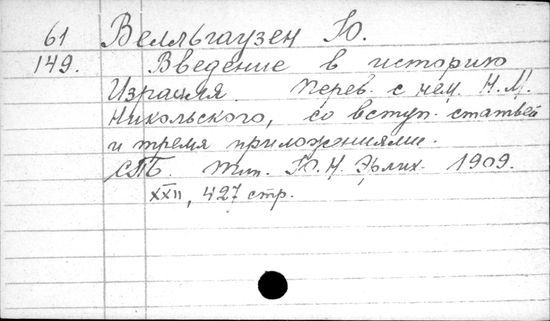 61 Велльгаузен Ю.
149. Введение в историю
Израиля. Перев. с нем. Н.М.
Никольского, со вступ. статьей
и тремя приложениями.
СПБ. Тип. Ю.Н. Эрлих. 1909.
XXII, 427 стр.